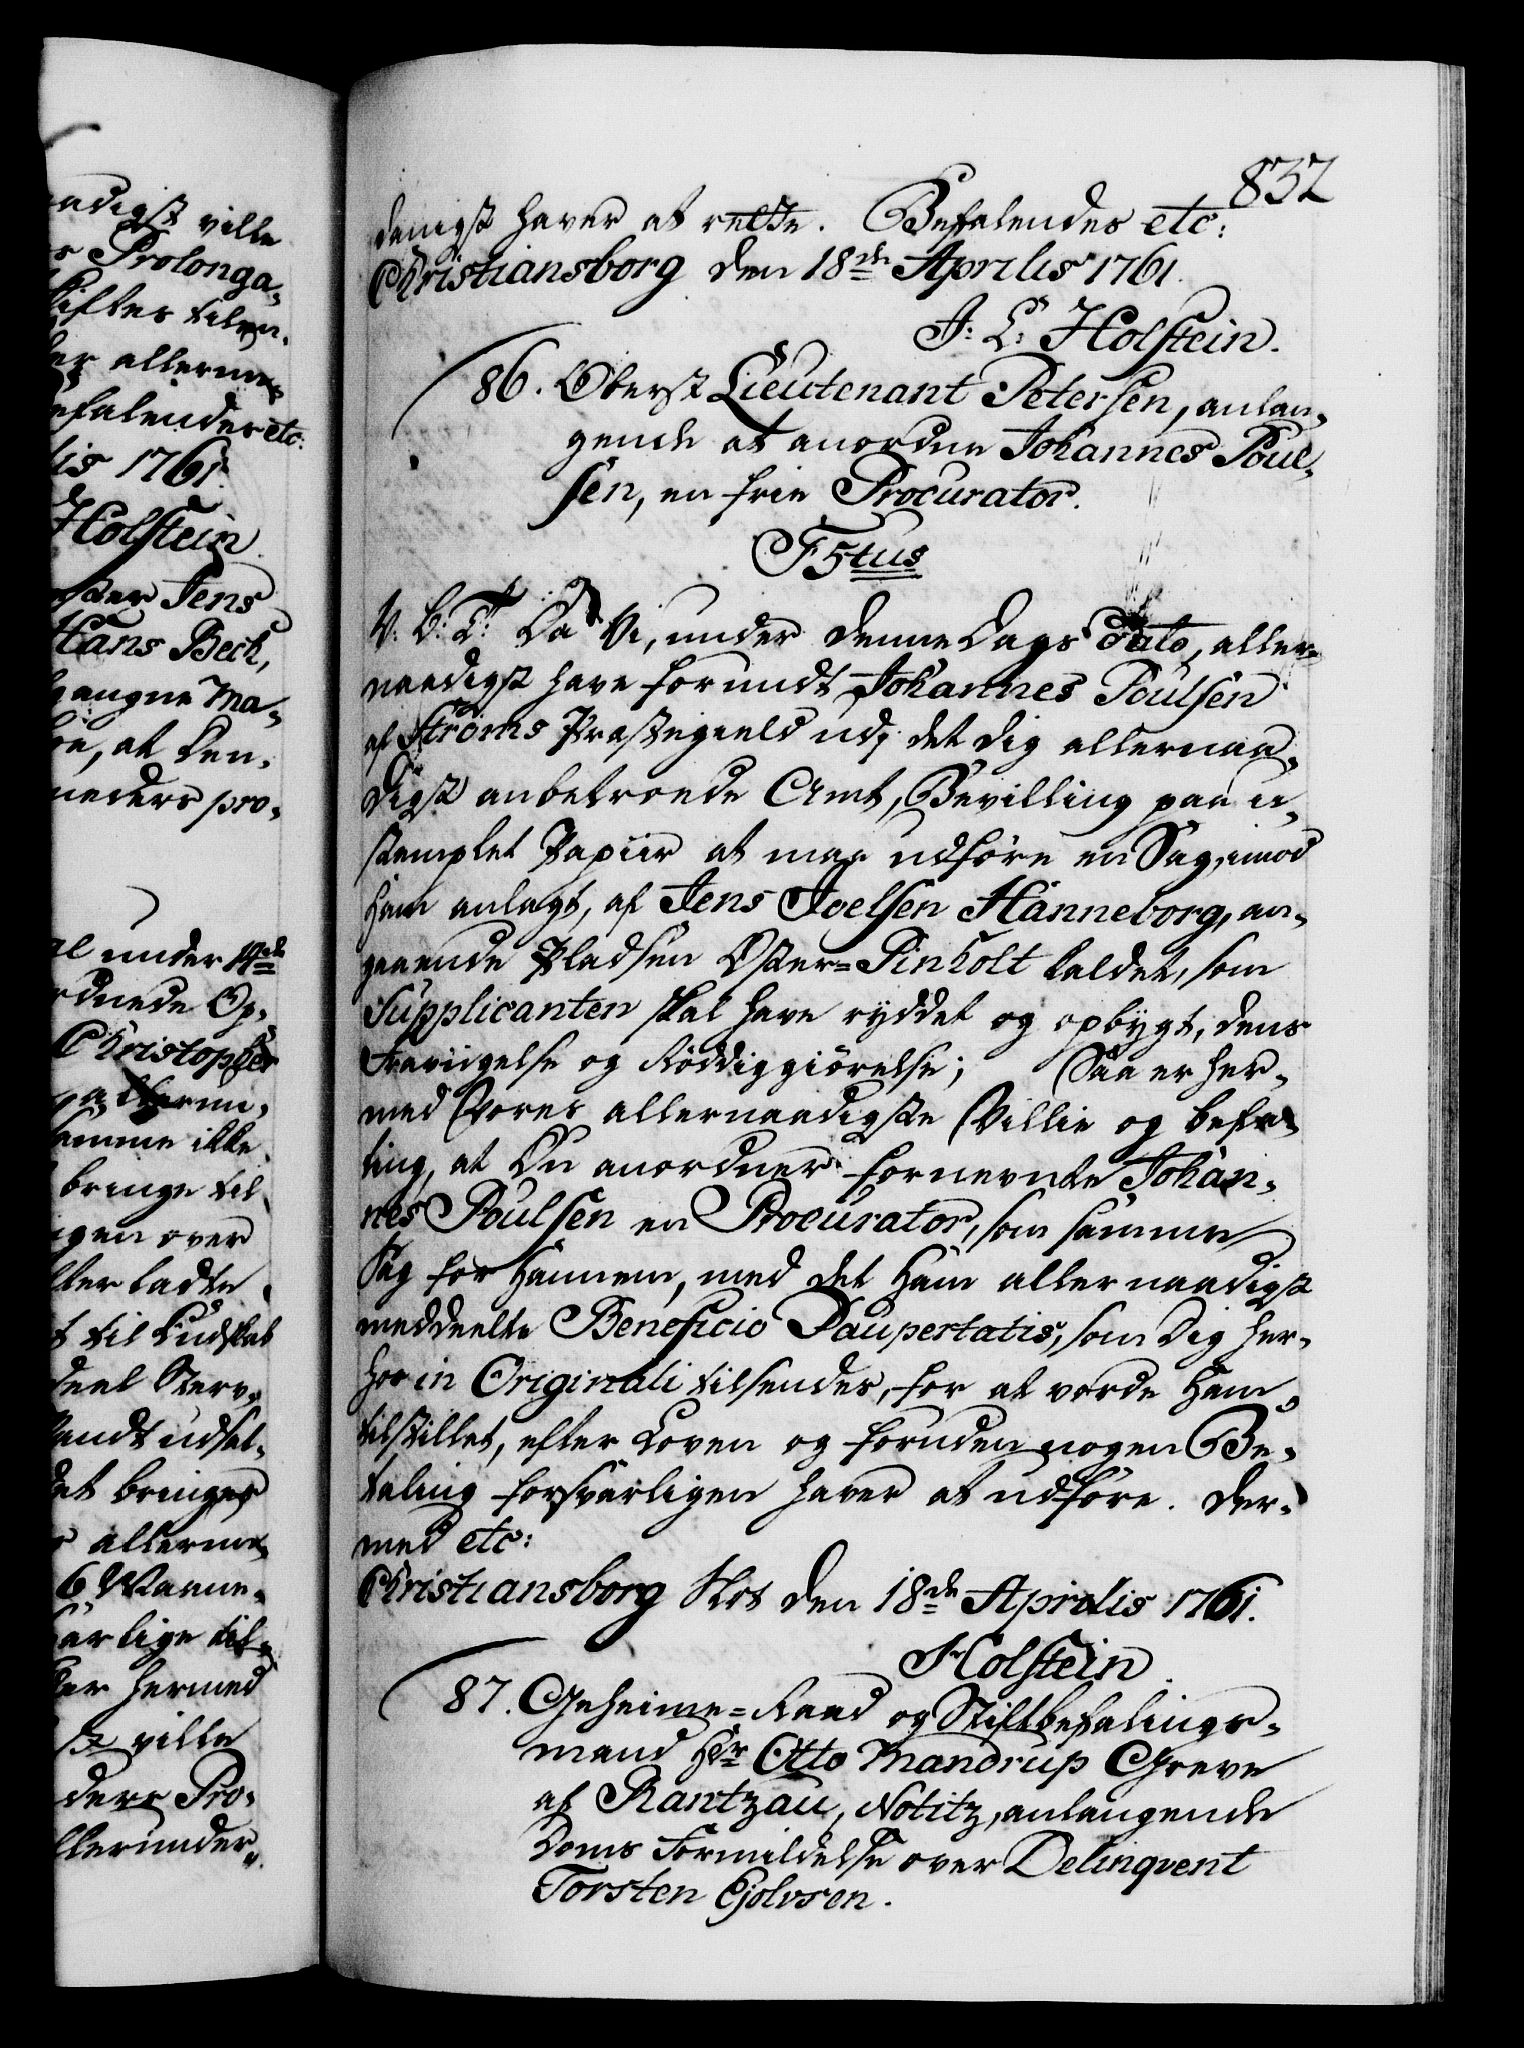 adigst ville
s Prolonga-
Stiftes
allerun-
Befalendes etc:
lis 1761.
Holstein
Jens
Hans Beck,
gangne Ma-
at
meders pro-
al under 14de
rdnede Op-
Christopher
samme ikke
bringe til
igen over
eller ladte
t til
deel
udsal-
bringes
allerun-
6
arlige til-
hermed
ville
ders Pro-
llerunder-
832
danigst haver at rette. Befalendes etc:
Christiansborg den 18de Aprilis 1761.
J: L: Holstein.
86. Oberst Lieutenant Petersen, anlan-
gende at anordne Johannes Poul-
sen, en frie Procurator.
F5tus
V: G: T: Da Vi, under denne Dags Dato, aller-
naadigst have forundt Johannes Poulsen
af Ströms Præstegield udj det dig allernaa-
digst anbetroede Amt, Bevilling paa u-
stemplet Papiir at maa udföre en Sag, imod
ham anlagt, af Jens Joelsen Hanneborg, an-
gaaende Pladsen Öster-Pinholt kaldet, som
Supplicanten skal have ryddet og opbygt, dens
Fravigelse og Röddiggiörelse; Saa er her-
med Vores allernaadigste Villie og befa-
ling, at Du anordner fornevnte Johan-
nes Poulsen en Procurator, som samme
Sag for Hannem, med det Ham allernaadigst
meddeelte Beneficio Paupertatis, som Dig her-
hos in Originali tilsendes, for at vorde Ham
tilstillet, efter Loven og foruden nogen Be-
taling forsvarligen haver at udföre. Der-
med etc:
Christiansborg Slot den 18de Aprilis 1761.
Holstein
87. Geheime-Raad og Stiftbefalings-
mand Hr Otto Mandrup Greve
af Rantzau, Notitz, anlangende
Doms Formildelse over Delinqvent
Torsten Gjolvsen.